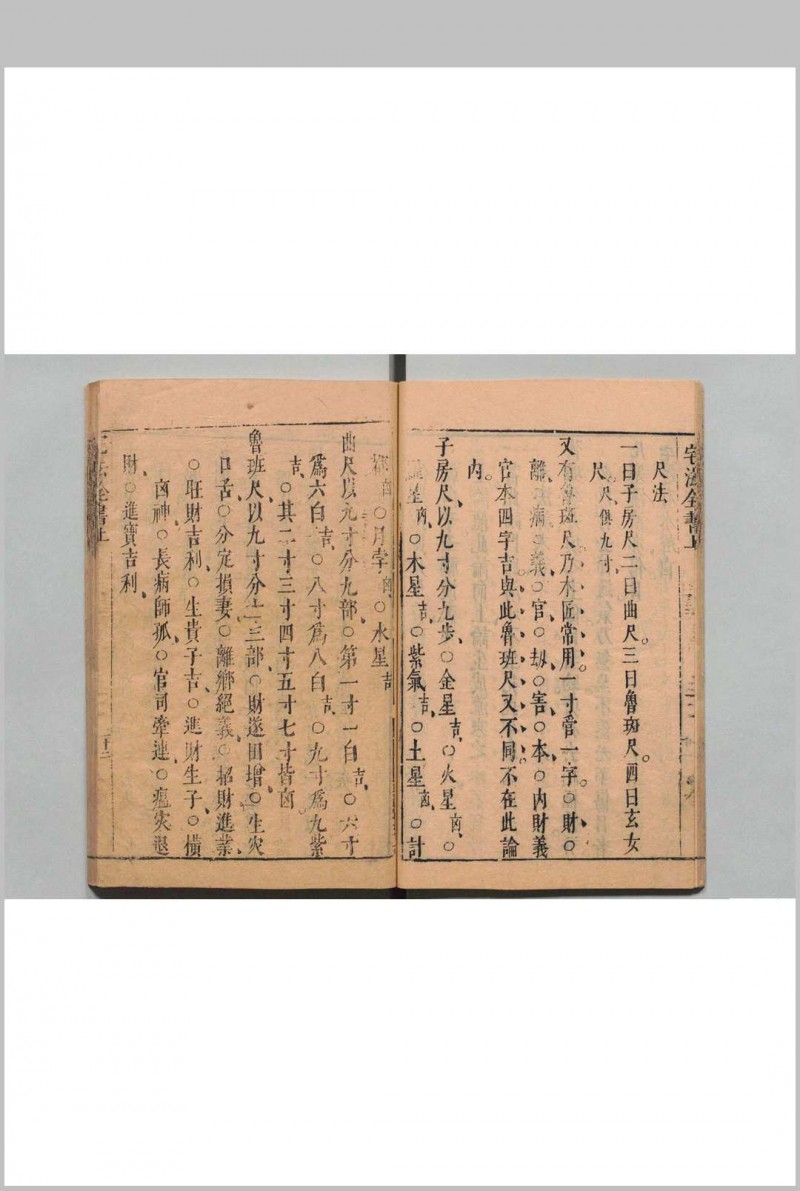 宅法全書上
尺法
一曰子房尺二曰曲尺三曰魯班尺四曰玄女
尺。尺俱九寸。
又有魯班尺乃木匠常用一寸管一字○財○
離○病○義○官○劫○害○本○内財義
官本四字吉與此魯班尺又不同不在此論
内。
子房尺以九寸分九步○金星吉○火星凶○
星凶○木星吉○紫氣吉○土星凶○計
○月孛凶○水星吉
曲尺以九寸分九部○第一寸一白吉○六寸
爲六白吉○八寸爲八白吉○九寸爲九紫
吉○其二寸三寸四寸五寸七寸皆凶
魯班尺以九寸分十三部○財遂田增○生灾
口舌○分定損妻○離鄉絕義○招財進業
○旺財吉利○生貴子吉○進財生子○橫
凶神○長病師孤○官司牽連○瘟灾退
財○進寶吉利
法全書上